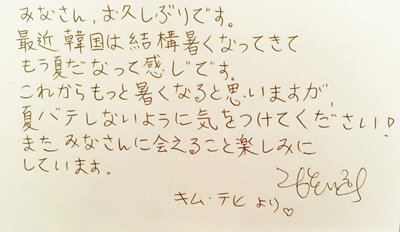 みなさん、お久しぶりです。
最近韓国は結構暑くなってきて
もう夏だなって感じです。
これからもっと暑くなると思いますが、
夏バテしないように気をつけてください!
また みなさんに会えること楽しみに
しています。
キム・テヒ より♡